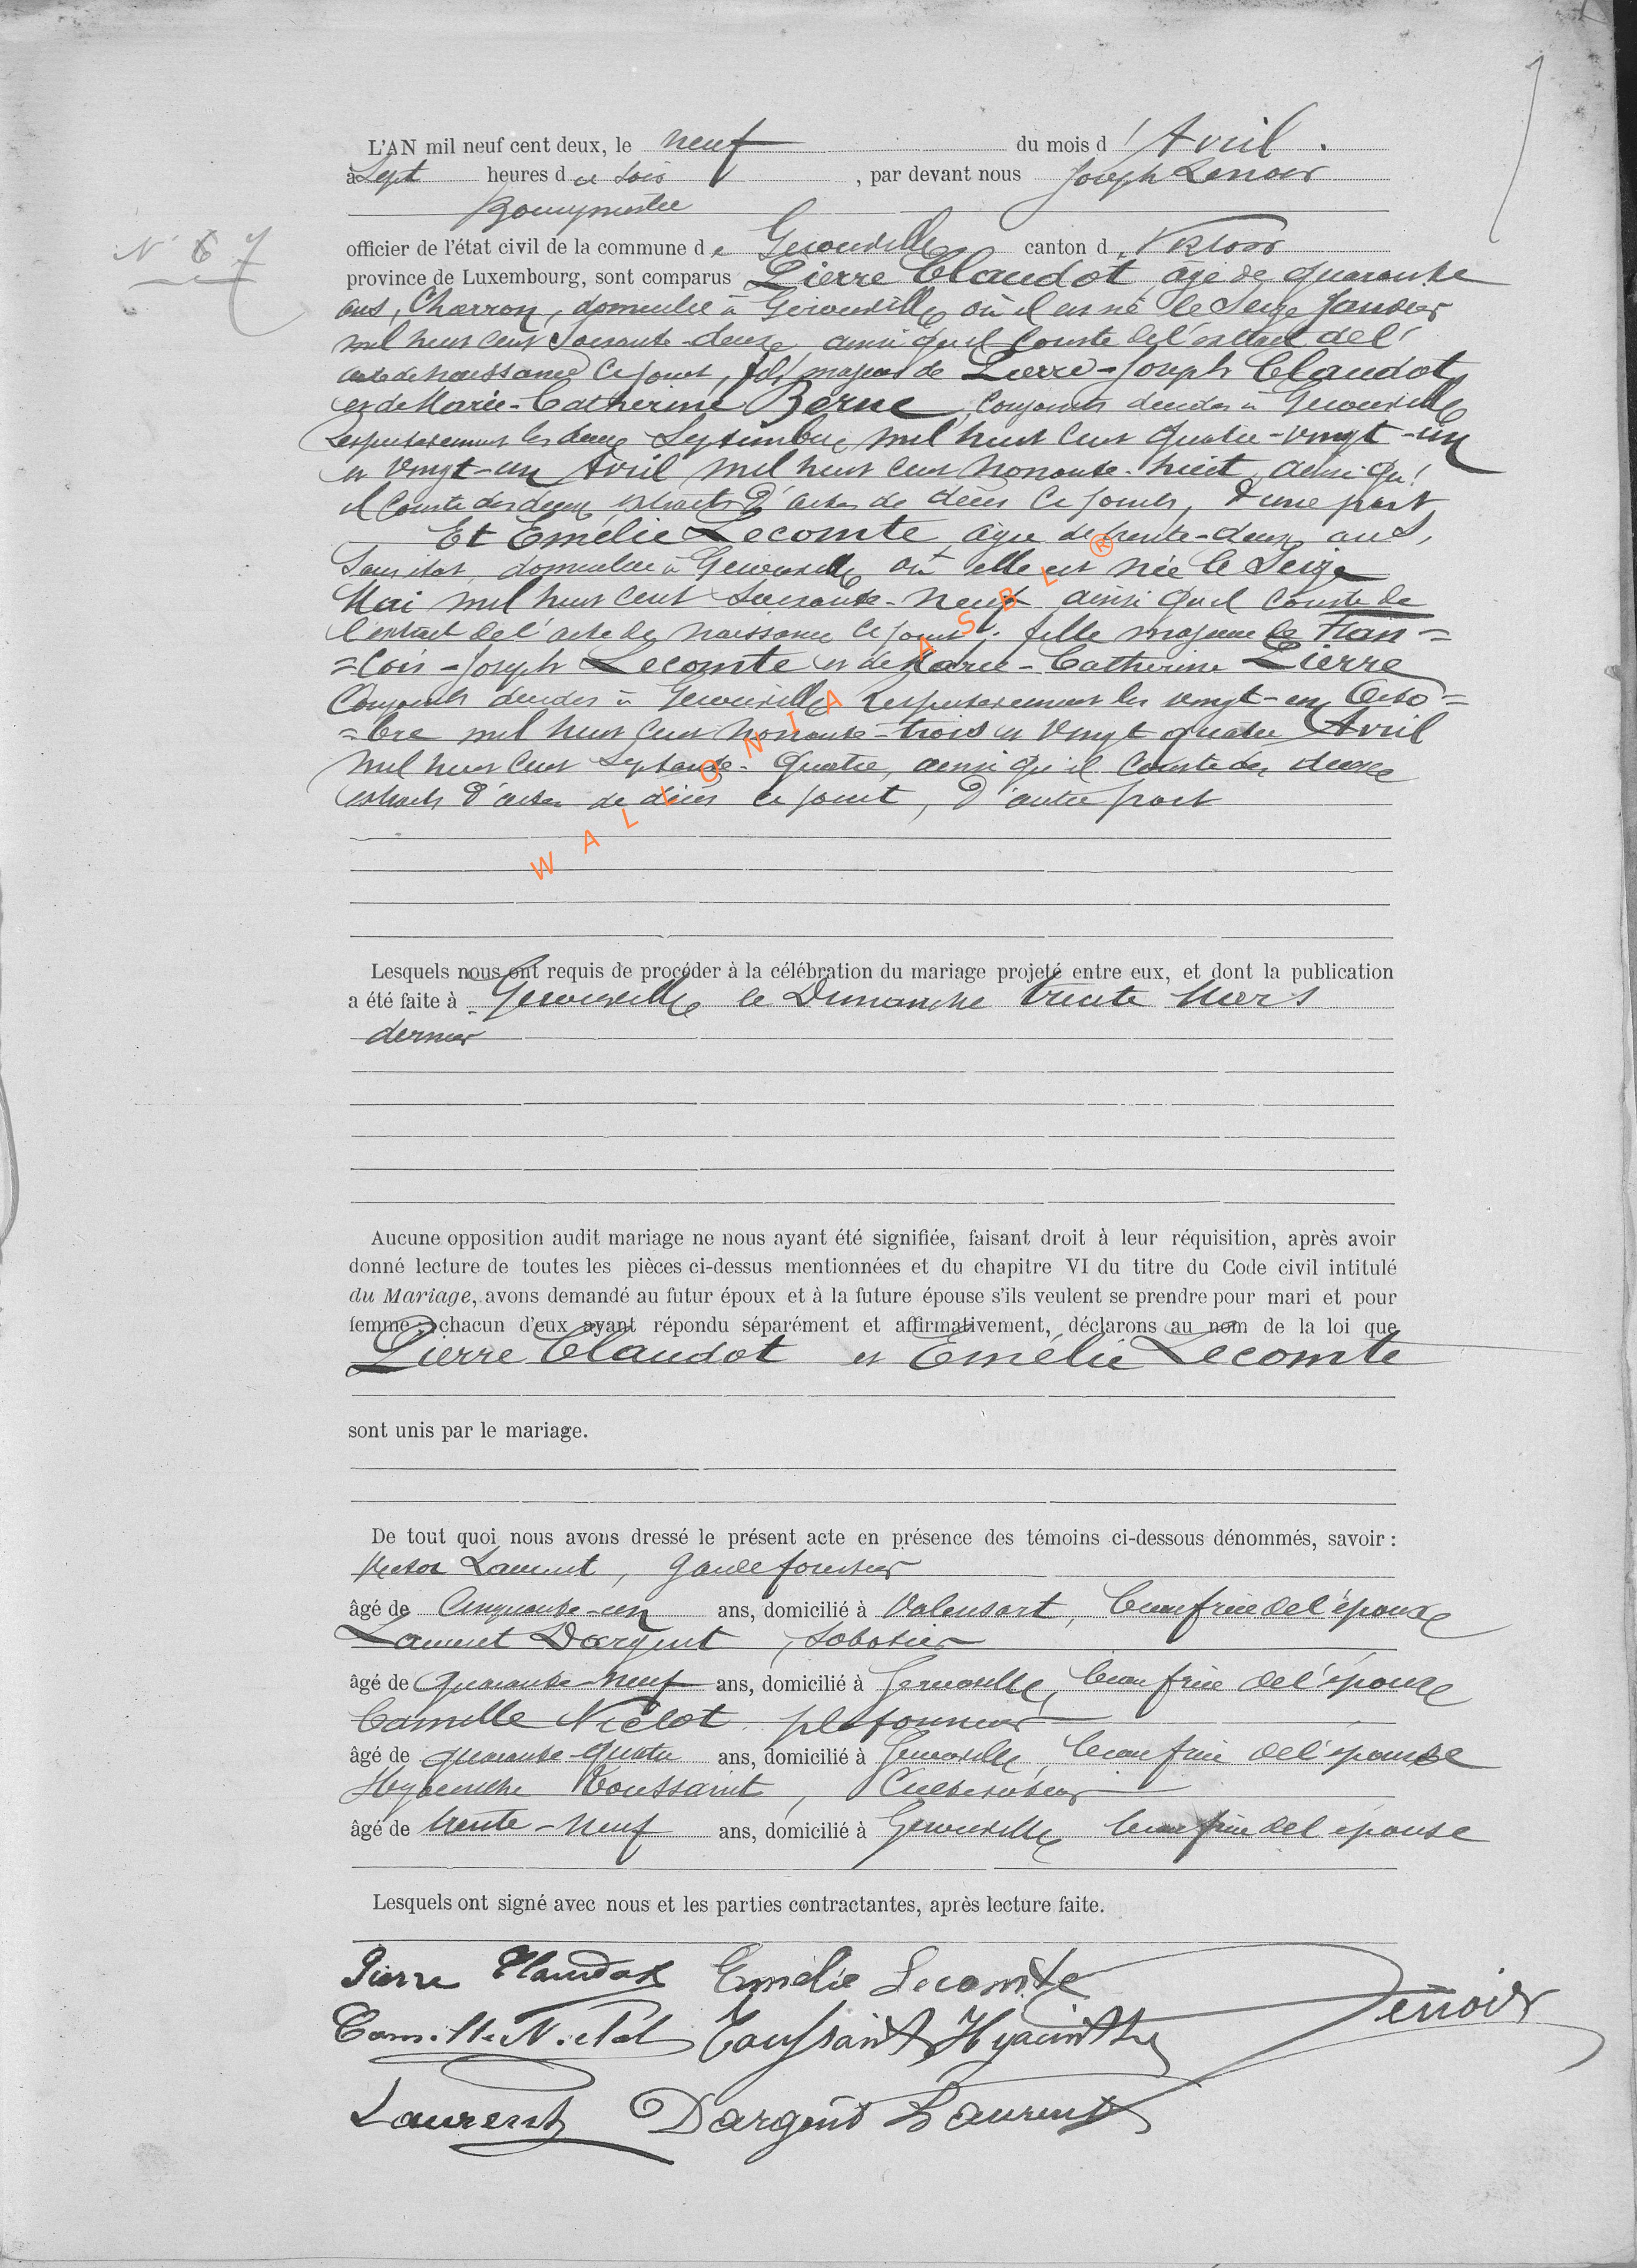 L'AN mil neuf cent deux, le neuf du mois d'Avril.
à Sept heures du soir, par devant nous Joseph Lenoir
Bourgmestre
N° 67
officier de l'état civil de la commune de Gerouville canton de Virton
province de Luxembourg, sont comparus Pierre Claudot, agé de quarante
ans, Charron, domicilié à Gerouville où il est né le Seize Janvier
mil huit cent soixante-deux, ainsi qu'il conste de l'extrait de l'
acte de naissance ci joint, fils majeur de Pierre-Joseph Claudot
et de Marie-Catherine Berne, conjoints décédés à Gerouville
respectivement les deux Septembre mil huit cent quatre-vingt-un
et vingt-un Avril mil huit cent nonante-huit, ainsi qu'
il conste des deux extraits d'actes de décès ci joints, d'une part
Et Emélie Lecomte agée de trente-deux ans,
Sans état, domiciliée à Gerouville où elle est née le Seize
Mai mil huit cent soixante-neuf ainsi qu'il conste de
l'extrait de l'acte de naissance ci joint; fille majeure de Fran=
=cois-Joseph Lecomte et de Marie-Catherine Pierre
Conjoints décédés à Gerouville respectivement les vingt-un Octo=
=bre mil huit cent nonante-trois et vingt quatre Avril
mil huit cent septante-quatre, ainsi qu'il conste des deux
extraits d'actes de décès ci joint, d'autre part
WALLONIA ASBL ®
Lesquels nous ont requis de procéder à la célébration du mariage projeté entre eux, et dont la publication
a été faite à Gerouville le Dimanche trente Mars
dernier
Aucune opposition audit mariage ne nous ayant été signifiée, faisant droit à leur réquisition, après avoir
donné lecture de toutes les pièces ci-dessus mentionnées et du chapitre VI du titre du Code civil intitulé
du Mariage, avons demandé au futur époux et à la future épouse s'ils veulent se prendre pour mari et pour
femme; chacun d'eux ayant répondu séparément et affirmativement, déclarons au nom de la loi que
Pierre Claudot et Emélie Lecomte
sont unis par le mariage.
De tout quoi nous avons dressé le présent acte en présence des témoins ci-dessous dénommés, savoir :
Victor Laurent, garde forestier
âgé de Cinquante-un ans, domicilié à Valensart, beau frère de l'époux
Laurent Dargent, sabotier
âgé de quarante-neuf ans, domicilié à Gerouville, beau frère de l'épouse
Camille Niclot, plafonneur
âgé de quarante-quatre ans, domicilié à Gerouville, beau frère de l'épouse
Hyacinthe Toussaint, Cultivateur
âgé de trente-neuf ans, domicilié à Gerouville beau frère de l'épouse
Lesquels ont signé avec nous et les parties contractantes, après lecture faite.
Pierre Claudot Emélie Lecomte
Camille Niclot Toussaint Hyacinthe Lenoir
Laurent Dargent Laurent